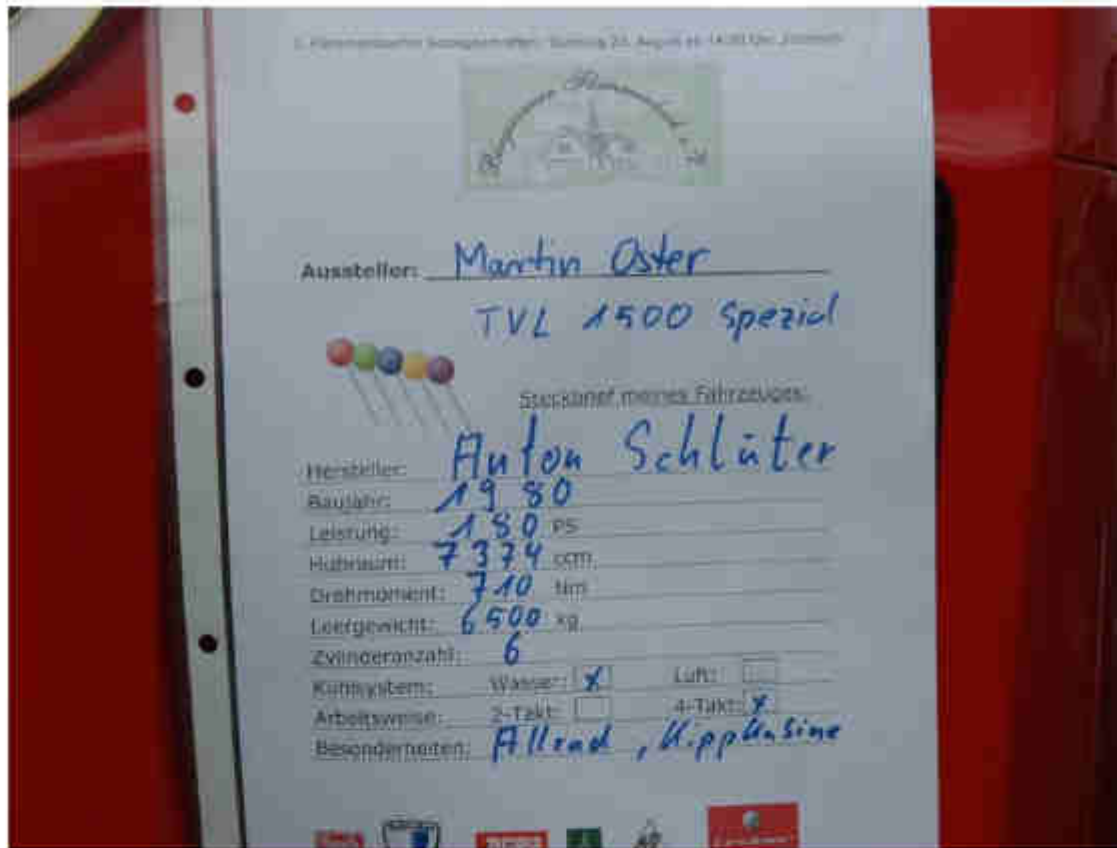 Aussteller: Martin Oster
TVL 1500 Spezial
Steckbrief meines Fahrzeuges:
Hersteller: Anton Schlüter
Baujahr: 1980
Leistung: 180 PS
Hubraum: 7374 ccm
Drehmoment: 710 Nm
Leergewicht: 6500 kg
Zylinderanzahl: 6
Kühlsystem: Wasser: x Luft:
Arbeitsweise: 2-Takt: 4-Takt: x
Besonderheiten: Allrad, Kippkabine